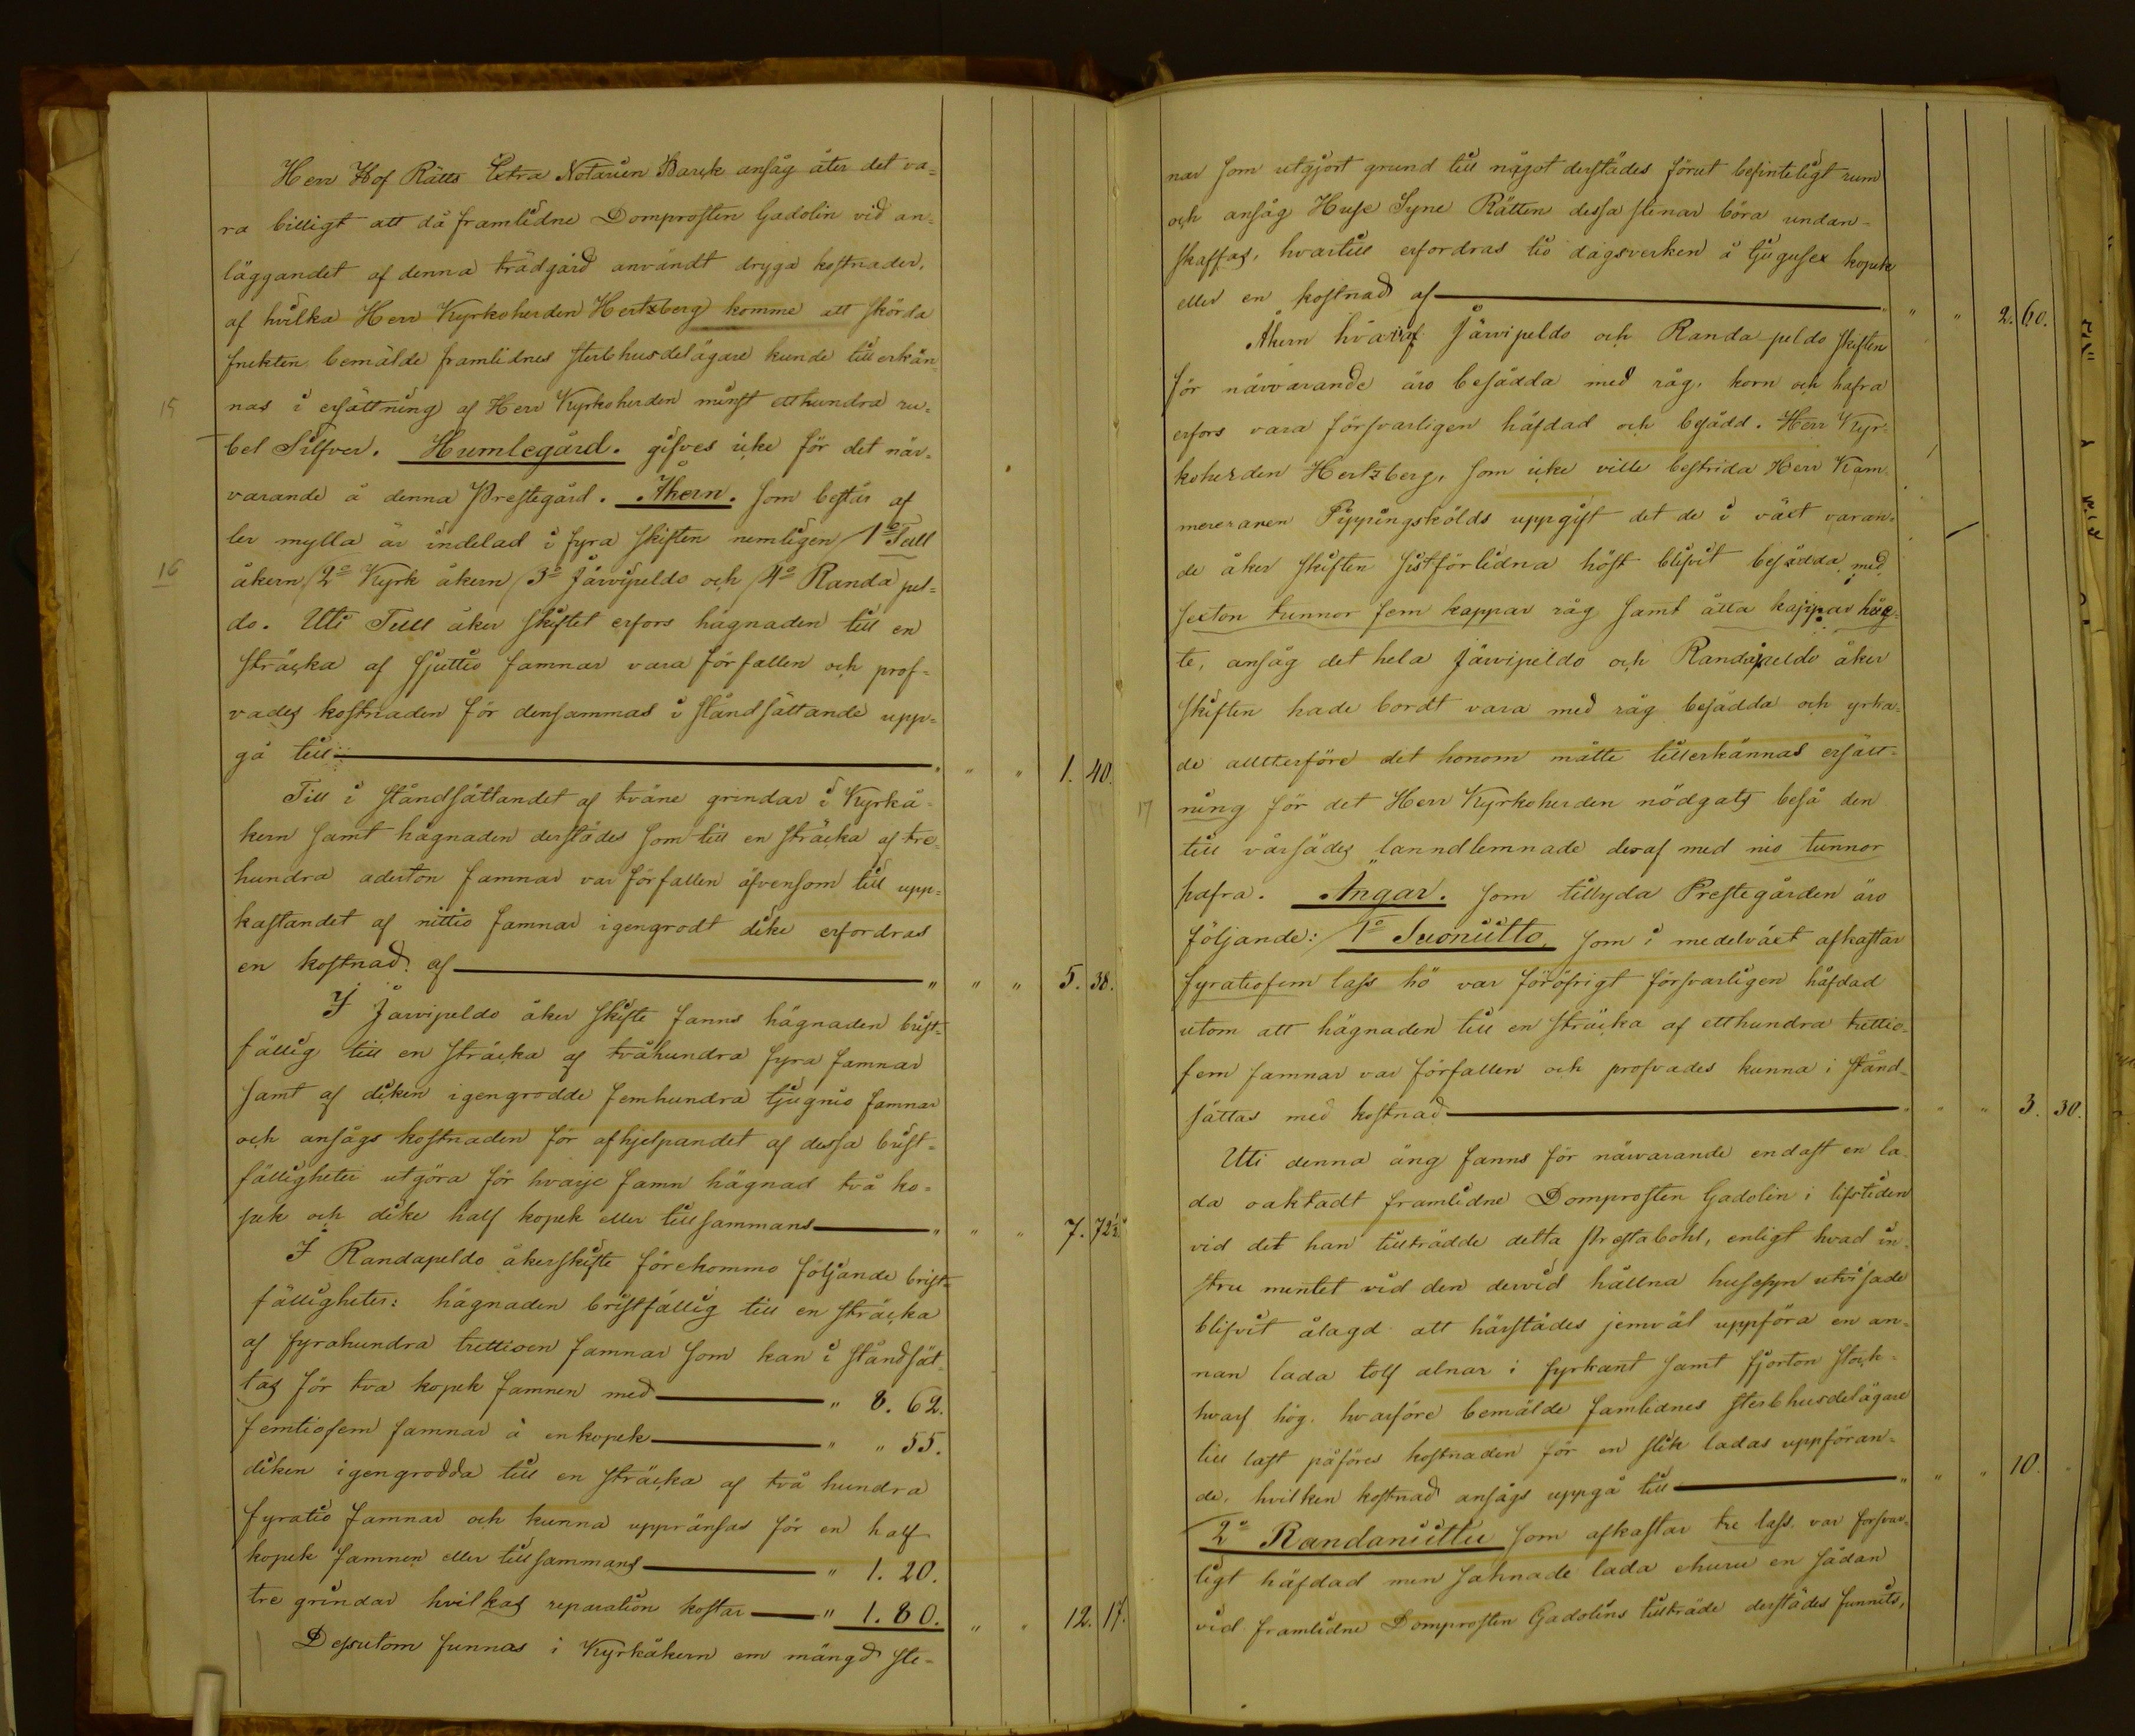 Herr Hof Rätts Extra Notarien Barck ansåg åter det va=
ra billigt att då framlidne Domprosten Gadolin vid an=
läggandet af denna trädgård användt dryga kostnader,
af hvilka Herr Kyrkoherden Hertzberg komme att skörda
frukten bemälde framlidnes sterbhusdelägare kunde tillerkän=
15
nas i ersättning af Herr Kyrkoherden minst etthundra ru=
bel Silfver. Humlegård. gifves icke för det när=
varande å denna Prestegård. Åkern. som består af
ler mylla är indelad i fyra skiften nemligen 1o Tull
16
åkern, 2o Kyrk åkern, 3o Järvipeldo och 4o Randa pel=
do. Uti Tull åker skiftet erfors hägnaden till en
sträcka af sjuttio famnar vara förfallen och prof=
vades kostnaden för densammas i ståndsättande upp=
gå till " " " 1. 40.
Till i ståndsättandet af tvåne grindar i Kyrkå=
kern samt hägnaden derstädes som till en sträcka af tre=
hundra aderton famnar var förfallen äfvensom till upp=
kastandet af nittio famnar igengrodt dike erfordras
en kostnad af " " " 5. 38.
I Järvipeldo åker skifte fanns hägnaden brist=
fällig till en sträcka af tvåhundra fyra famnar
samt af diken igengrodde femhundra tjugnio famnar
och ansågs kostnaden för afhjelpandet af dessa brist=
fälligheter utgöra för hvarje famn hägnad två ko=
pek och dike half kopek eller tillsammans " " " 7. 72½.
I Randapeldo åkerskifte förekommo följande brist=
fälligheter: hägnaden bristfällig till en sträcka
af fyrahundra trettioen famnar som kan i ståndsät=
tas för tva kopek famnen med " 8. 62.
femtiofem famnar à enkopek " " 55.
diken igengrodda till en sträcka af två hundra
fyratio famnar och kunna uppränsas för en half
kopek famnen eller tillsammans " 1. 20.
tre grindar hvilkas reparation kostar " 1. 80. " " 12. 17.
Dessutom funnas i Kyrkåkern em mängd ste=
nar som utgjort grund till något derstädes förut befinteligt rum
och ansåg Huse Syne Rätten dessa stenar böra undan-
skaffas, hvartill erfordras tio dagsverken à tjugusex kopek
eller en kostnad af " " " 2. 60.
Åkern hvaraf Järvipeldo och Randa peldo skiften
för närvarande äro besådda med råg, korn och hafra
erfors vara försvarligen häfdad och besådd. Herr Kyr=
koherden Hertzberg, som icke ville bestrida Herr Kam=
mereraren Pippingskölds uppgift det de i växt varan=
de åker skiften sistförlidna höst blifvit besådda med
sexton tunnor fem kappar råg samt åtta kappar hve=
te, ansåg det hela Järvipeldo och Randapeldo åker
skiften hade bordt vara med råg besådda och yrka=
de allttserföre det honom måtte tillerkännas ersätt=
17
ning för det Herr Kyrkoherden nödgats beså den
till vårsädes lanndlemnade deraf med nio tunnor
hafra. Ängar. som tillyda Prestegården äro
följande: 1o Suoniitto som i medelväxt afkastar
fyratiofem lass hö var föröfrigt försvarligen häfdad
utom att hägnaden till en sträcka af etthundra trettio
fem famnar var förfallen och profvades kunna i stånd=
sättas med kostnad " " " 3. 30.
Uti denna äng fanns för närvarande endast en la=
da oaktadt framlidne Domprosten Gadolin i lifstiden
vid det han tillträdde detta Prestabohl, enligt hvad in=
stru mentet vid den dervid hållna husesyn utvisade
blifvit ålagd att härstädes jemväl uppföra en an=
nan lada tolf alnar i fyrkant samt fjorton stock=
hvarf hög, hvarföre bemälde famlidnes sterbhusdelägare
till last påföres kostnaden för en slik ladas uppföran=
de, hvilken kostnad ansågs uppgå till " " " 10.
2o Randaniittu som afkastar tre lass var försvar=
ligt häfdad men saknade lada ehuru en sådan
vid framlidne Domprosten Gadolins tillträde derstädes funnits,